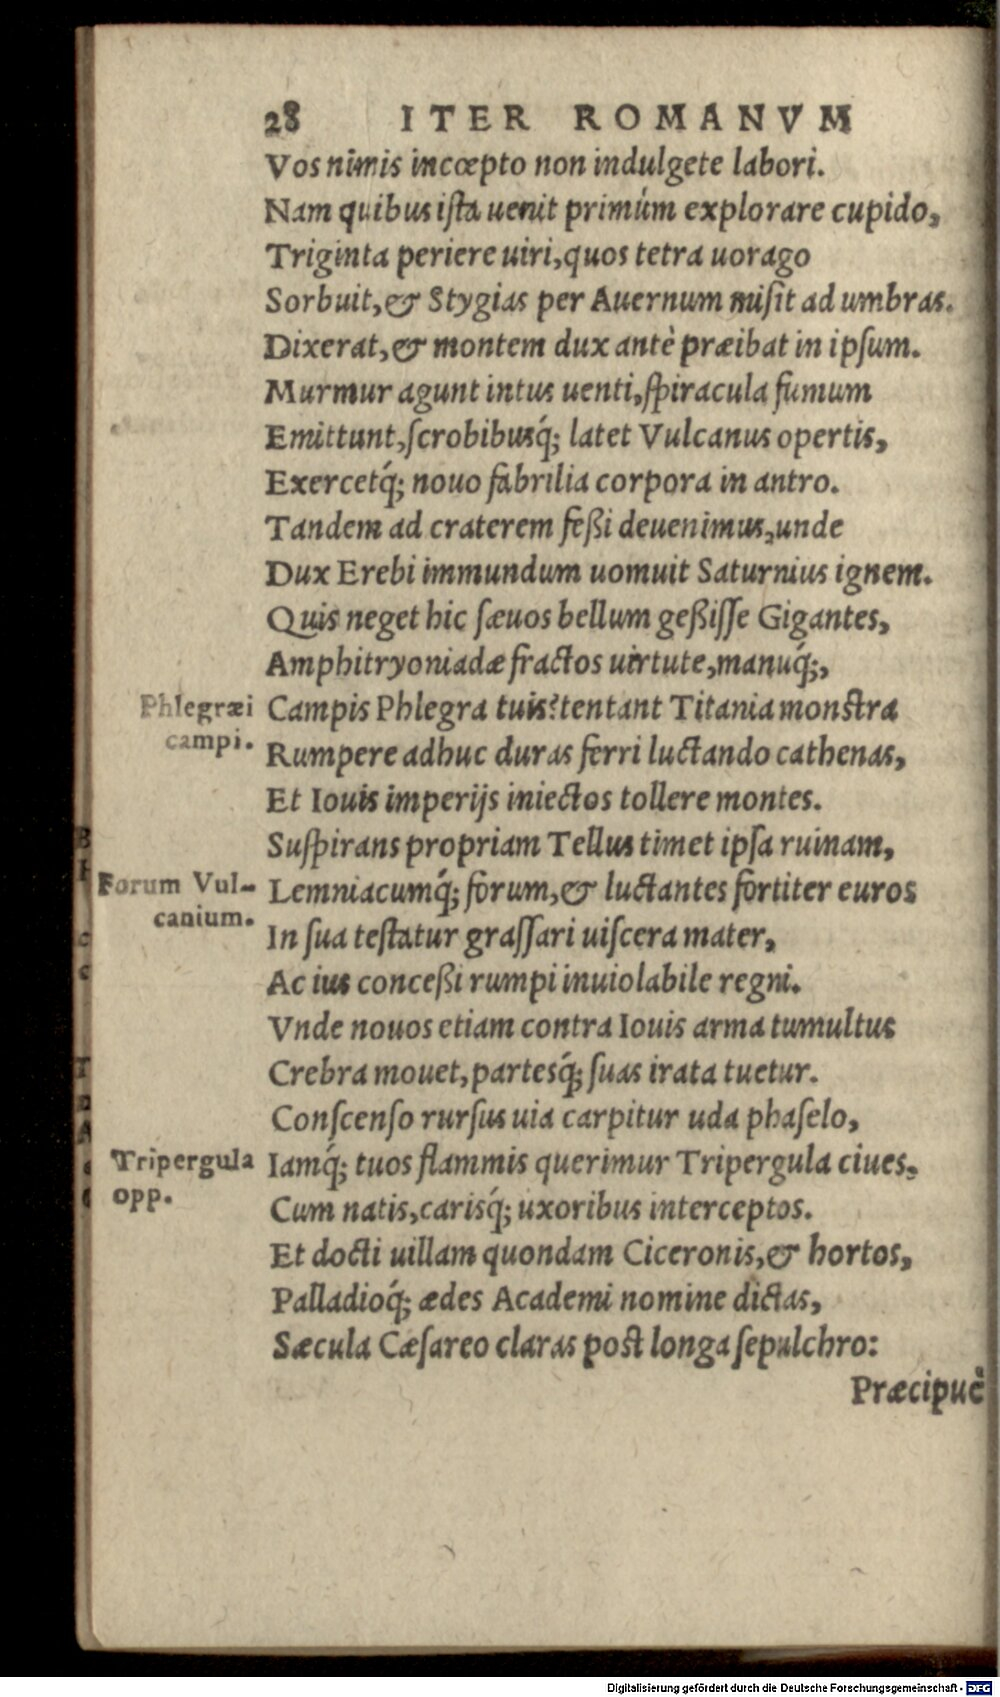 28 ITER ROMANVM
Vos nimis incœpto non indulgete labori.
Nam quibus iſta uenit primúm explorare cupido,
Triginta periere uiri, quos tetra uorago
Sorbuit, & Stygias per Auernum miſit ad umbras.
Dixerat, & montem dux antè præibat in ipſum.
Murmur agunt intus uenti, ſpiracula fumum
Emittunt, ſcrobibusq́; latet Vulcanus opertis,
Exercetq́; nouo fabrilia corpora in antro.
Tandem ad craterem feßi deuenimus, unde
Dux Erebi immundum uomuit Saturnius ignem.
Quis neget hic ſæuos bellum geßiſſe Gigantes,
Amphitryoniadæ fractos uirtute, manuq́;,
Phlegræi Campis Phlegra tuis? tentant Titania monſtra
campi. Rumpere adhuc duras ferri luctando cathenas,
Et Iouis imperijs iniectos tollere montes.
Suſpirans propriam Tellus timet ipſa ruinam,
Forum Vul- Lemniacumq́; forum, & luctantes fortiter euros
canium. In ſua teſtatur graſſari uiſcera mater,
Ac ius conceßi rumpi inuiolabile regni.
Vnde nouos etiam contra Iouis arma tumultus
Crebra mouet, partesq́; ſuas irata tuetur.
Conſcenſo rurſus uia carpitur uda phaſelo,
Tripergula Iamq́; tuos flammis querimur Tripergula ciues,
opp. Cum natis, carisq́; uxoribus interceptos.
Et docti uillam quondam Ciceronis, & hortos,
Palladioq́; ædes Academi nomine dictas,
Sæcula Cæſareo claras poſt longa ſepulchro:
Præcipuè
Digitalisierung gefördert durch die Deutsche Forschungsgemeinschaft - DFG